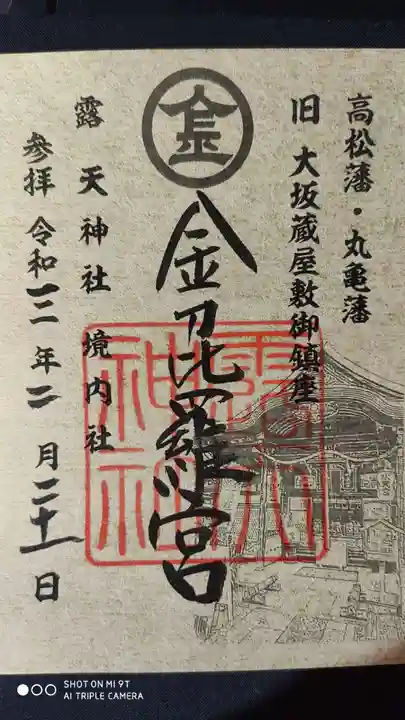 高松藩・丸亀藩
旧 大坂蔵屋敷御鎮座
金
金刀比羅宮
露天神社
露天神社 境内社
参拝 令和三年二月二十一日
SHOT ON MI 9T
AI TRIPLE CAMERA